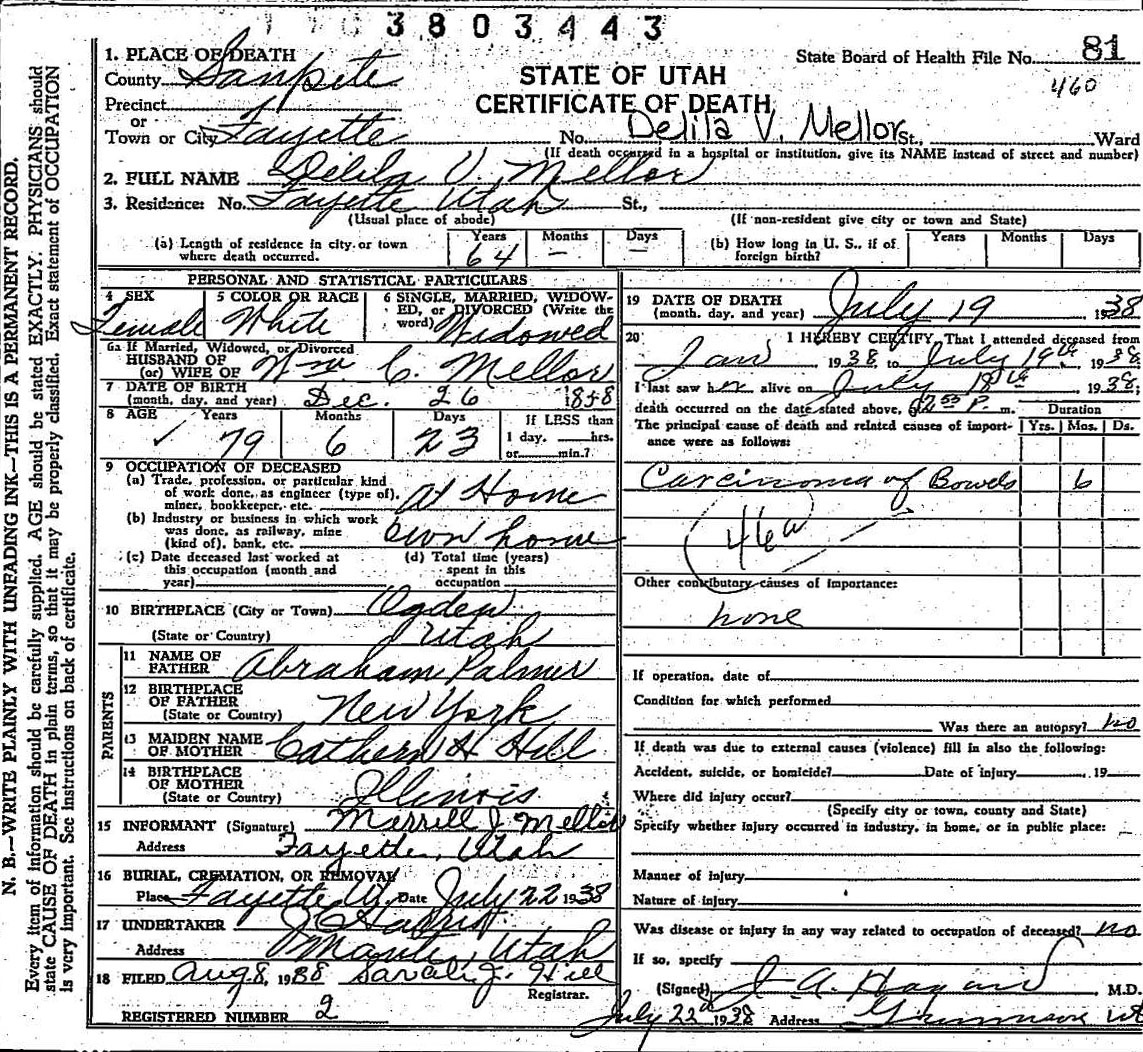 3803443
1. PLACE OF DEATH
County Sanpete
State Board of Health File No. 81
460
STATE OF UTAH
CERTIFICATE OF DEATH
Precinct
or
Town or City Fayette No. Delila V. Mellor St., Ward
(If death occurred in a hospital or institution, give its NAME instead of street and number)
2. FULL NAME Delila V. Mellor
3. Residence: No. Fayette Utah St.,
(Usual place of abode) (If non-resident give city or town and State)
(a) Length of residence in city or town where death occurred. Years 64 Months – Days –
(b) How long in U. S., if of foreign birth? Years Months Days
PERSONAL AND STATISTICAL PARTICULARS
4 SEX Female
5 COLOR OR RACE White
6 SINGLE, MARRIED, WIDOWED, or DIVORCED (Write the word) Widowed
6a If Married, Widowed, or Divorced
HUSBAND OF
(or) WIFE OF Wm C. Mellor
7 DATE OF BIRTH
(month, day, and year) Dec. 26 1858
8 AGE Years 79 Months 6 Days 23
If LESS than
1 day, hrs.
or min.?
9 OCCUPATION OF DECEASED
(a) Trade, profession, or particular kind
of work done, as engineer (type of),
miner, bookkeeper, etc. At Home
(b) Industry or business in which work
was done, as railway, mine
(kind of), bank, etc. Own home
(c) Date deceased last worked at
this occupation (month and
year)
(d) Total time (years)
spent in this
occupation
10 BIRTHPLACE (City or Town) Ogden
(State or Country) Utah
PARENTS
11 NAME OF
FATHER Abraham Palmer
12 BIRTHPLACE
OF FATHER
(State or Country) New York
13 MAIDEN NAME
OF MOTHER Cathern H Hill
14 BIRTHPLACE
OF MOTHER
(State or Country) Illinois
15 INFORMANT (Signature) Merrill J. Mellor
Address Fayette, Utah
16 BURIAL, CREMATION, OR REMOVAL
Place Fayette U. Date July 22 1938
17 UNDERTAKER
Address Manti, Utah
18 FILED Aug 8, 1938 Sarah J. Hill
Registrar.
REGISTERED NUMBER 2
19 DATE OF DEATH
(month, day, and year) July 19 1938
20 I HEREBY CERTIFY, That I attended deceased from
Jan 1938 to July 19th, 1938
I last saw her alive on July 19th 1938;
death occurred on the date stated above, P. m.
The principal cause of death and related causes of importance were as follows:
Duration
Yrs. Mos. Ds.
Carcinoma of Bowels 6
46a
Other contributory causes of importance:
none
If operation, date of
Condition for which performed
Was there an autopsy? no
If death was due to external causes (violence) fill in also the following:
Accident, suicide, or homicide? Date of injury , 19
Where did injury occur?
(Specify city or town, county and State)
Specify whether injury occurred in industry, in home, or in public place:
Manner of injury
Nature of injury
Was disease or injury in any way related to occupation of deceased? no
If so, specify
(Signed) J A Hagan M.D.
July 22d 1938 Address Ut
N. B.—WRITE PLAINLY WITH UNFADING INK—THIS IS A PERMANENT RECORD.
Every item of information should be carefully supplied. AGE should be stated EXACTLY. PHYSICIANS should
state CAUSE OF DEATH in plain terms, so that it may be properly classified. Exact statement of OCCUPATION
is very important. See instructions on back of certificate.